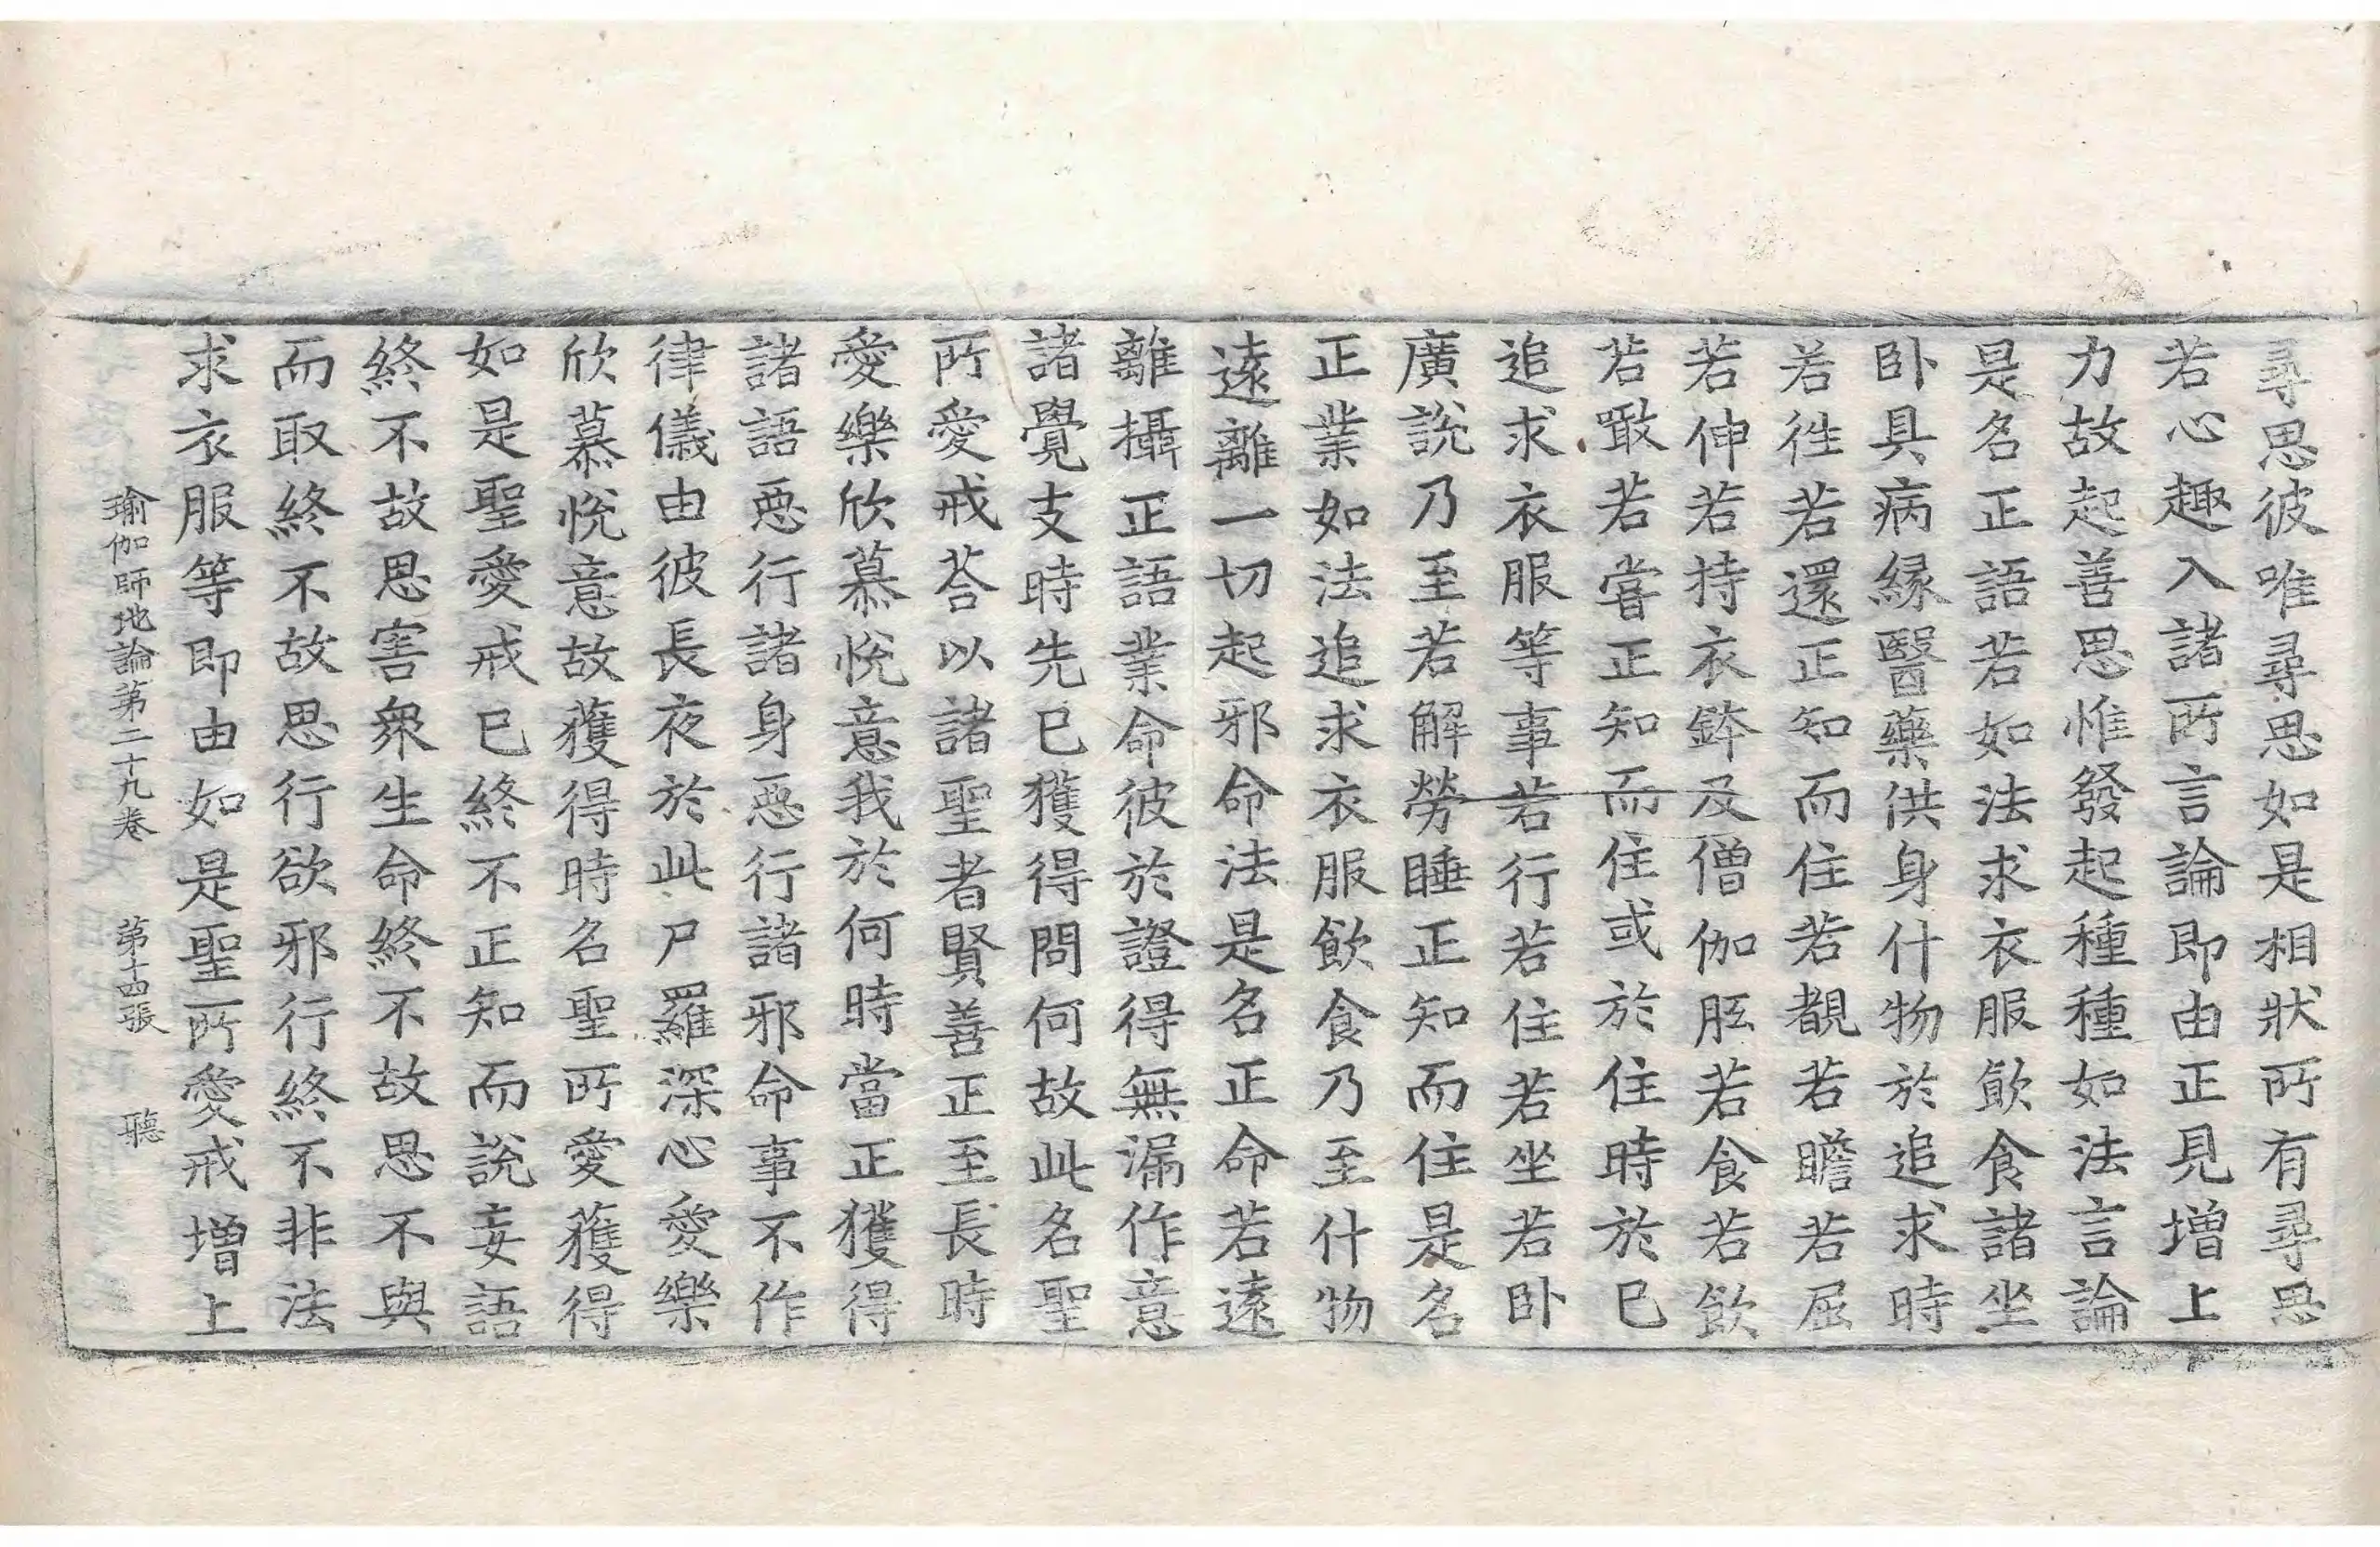 尋思彼唯尋思如是相狀所有尋思
若心趣入諸所言論即由正見增上
力故起善思惟發起種種如法言論
是名正語若如法求衣服飲食諸坐
卧具病緣醫藥供身什物於追求時
若徃若還正知而住若覩若瞻若屈
若伸若持衣鉢及僧伽胝若食若飲
若噉若甞正知而住或於住時於已
追求衣服等事若行若住若坐若卧
廣說乃至若解勞睡正知而住是名
正業如法追求衣服飲食乃至什物
遠離一切起邪命法是名正命若遠
離攝正語業命彼於證得無漏作意
諸覺支時先已獲得問何故此名聖
所愛戒荅以諸聖者賢善正至長時
愛樂欣慕悅意我於何時當正獲得
諸語惡行諸身惡行諸邪命事不作
律儀由彼長夜於此尸羅深心愛樂
欣慕悅意故獲得時名聖所愛獲得
如是聖愛戒已終不正知而說妄語
終不故思害衆生命終不故思不與
而取終不故思行欲邪行終不非法
求衣服等即由如是聖所愛戒增上
瑜伽師地論第二十九卷 第十四張 聽